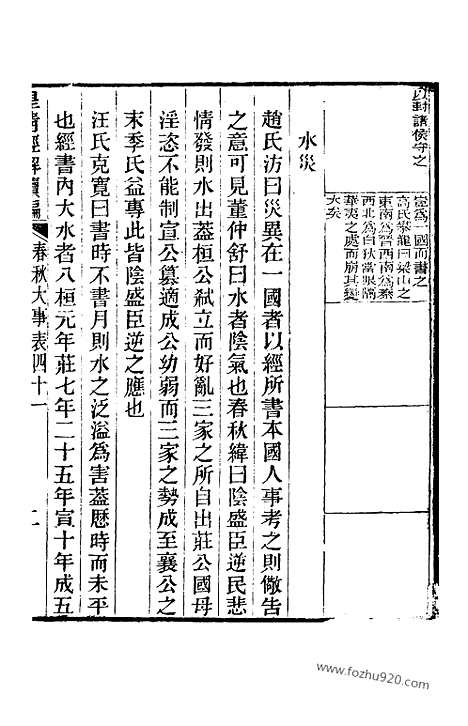 以封諸侯守之
豈爲一國而書之
高氏攀龍曰梁山之
東南爲晉西南爲秦
西北爲白狄當眼前
華夷之處而崩其變
大矣
水災
趙氏汸曰災異在一國者以經所書本國人事考之則儆告
之意可見董仲舒曰水者陰氣也春秋緯曰陰盛臣逆民悲
情發則水出蓋桓公弒立而好亂三家之所自出莊公國母
淫恣不能制宣公篡適成公幼弱而三家之勢成至襄公之
末季氏益專此皆陰盛臣逆之應也
汪氏克寬曰書時不書月則水之泛溢爲害蓋歷時而未平
也經書內大水者八桓元年莊七年二十五年宣十年成五
皇清經解續編
春秋大事表四十一
二
www.fozhu920.com